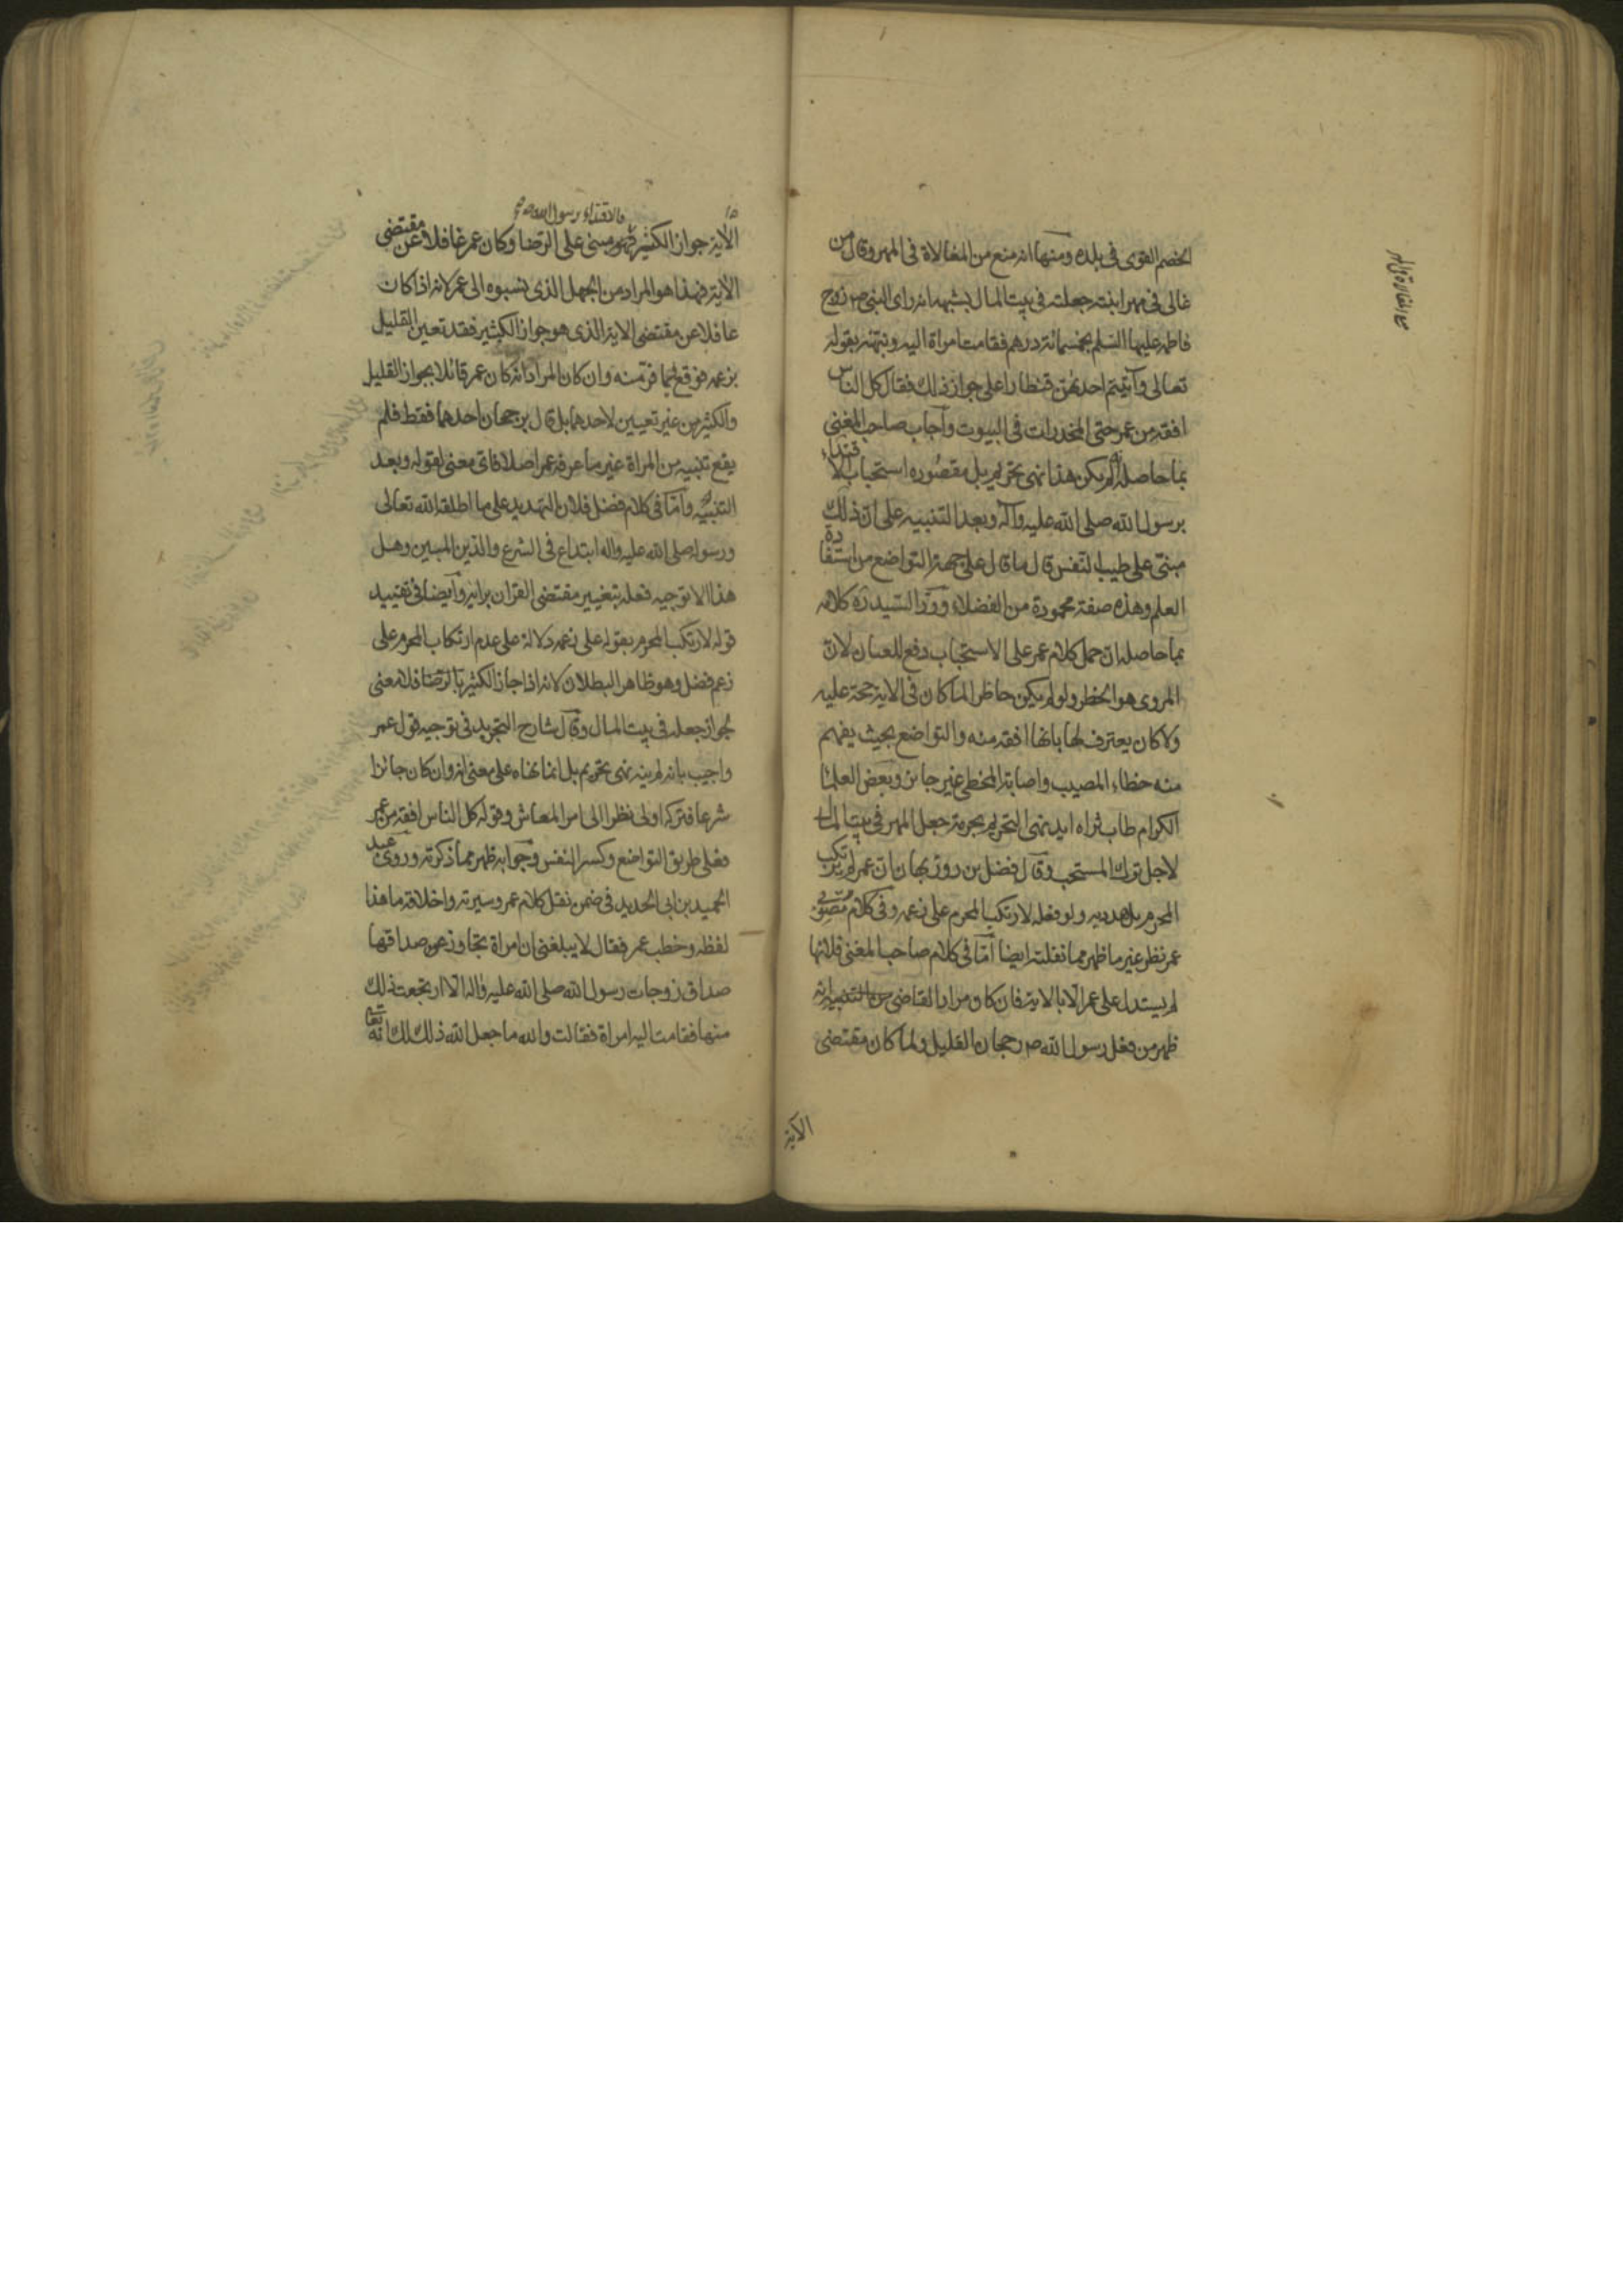 الخصم القوى فى بلده ومنها انه منع من المغالاة فى المهر وقال من
غالى فى مهر ابنته جعلته فى بيت المال بشبهة انه راى النبى ص زوج
فاطمة عليها السلم بخمسمائة درهم فقامت امراة اليه ونبهته بقوله
تعالى وآتيتم احديهن قنطارا على جواز ذلك فقال كل الناس
افقه من عمر حتى المخدرات فى البيوت وآجاب صاحب المغنى
بما حاصله انه لم يكن هذا نهى تحريم بل مقصوره استحباب الاقتداء
برسول الله صلى الله عليه وآله وبعد التنبيه على ان ذلك
مبنى على طيب النفس قال ما قال على جهة التواضع من استفادة
العلم وهذه صفة محمودة من الفضلاء وردّ السيد ره كلامه
بما حاصله ان حمل كلام عمر على الاستحباب دفع للعيان لان
المروى هو الحظر ولو لم يكن حاظرا لما كان فى الاية حجة عليه
ولا كان يعترف لها بانها افقه منه والتواضع بحيث يفهم
منه خطاء المصيب واصابة المخطى غير جائز وبعض العلما
الكرام طاب ثراه ايد نهى التحريم بحرمة جعل المهر فى بيت المال
لاجل ترك المستحب وقال فضل بن روزبهان بان عمر لم يرتكب
المحرم بل هدد به ولو فعله لارتكب المحرم على زعمه وفى كلام مصوبى
عمر نظر غير ما ظهر مما نقلته ايضا امّا فى كلام صاحب المغنى فلانها
لم يستدل على عمر الّا بالاية فان كان مراد القاضى من التنبيه انه
ظهر من فعل رسول الله ص رجحان القليل ولما كان مقتضى
الآية
منع المغالاة فى المهر
فالاقتداء برسول الله ص
الآية جواز الكثير فهو مبنى على الرضا وكان عمر غافلا عن مقتضى
الآية فهذا هو المراد من الجهل الذى نسبوه الى عمر لانه اذا كان
غافلا عن مقتضى الاية الذى هو جواز الكثير فقد تعين القليل
بزعمه فوقع فيما فرّ منه وان كان المراد انه كان عمر قائلا بجواز القليل
والكثير من غير تعيين لاحدهما بل قال برجحان احدهما فقط فلم
يقع تنبيه من المراة غير ما عرفه عمر اصلا فاى معنى لقوله وبعد
التنبيه وامّا فى كلام فضل فلان التهديد على ما اطلقه الله تعالى
ورسوله صلى الله عليه واله ابتداع فى الشرع والدّين المبين وهل
هذا الا توجيه فعله بتغيير مقتضى القرآن برايه وآيضا فى تقييد
قوله لارتكب المحرم بقوله على زعمه دلالة على عدم ارتكاب المحرم على
زعم فضل وهو ظاهر البطلان لانه اذا جاز الكثير بالرضا فلا معنى
لجواز جعله فى بيت المال وقال شارح التجريد فى توجيه قول عمر
واجيب بانه لم ينه نهى تحريم بل انما نهاه على معنى انه وان كان جائزا
شرعا فتركه اولى نظرا الى امر المعاش وقوله كل الناس افقه من عمر
فعلى طريق التواضع وكسر النفس وجوابه ظهر مما ذكرته وروى عبد
الحميد بن ابى الحديد فى ضمن نقل كلام عمر وسيرته واخلاقه ما هذا
لفظه وخطب عمر فقال لا يبلغنى ان امراة تجاوز عن صداقها
صداق زوجات رسول الله صلى الله عليه وآله الا ارتجعت ذلك
منها فقامت اليه امراة فقالت والله ما جعل الله ذلك لك انه تعا